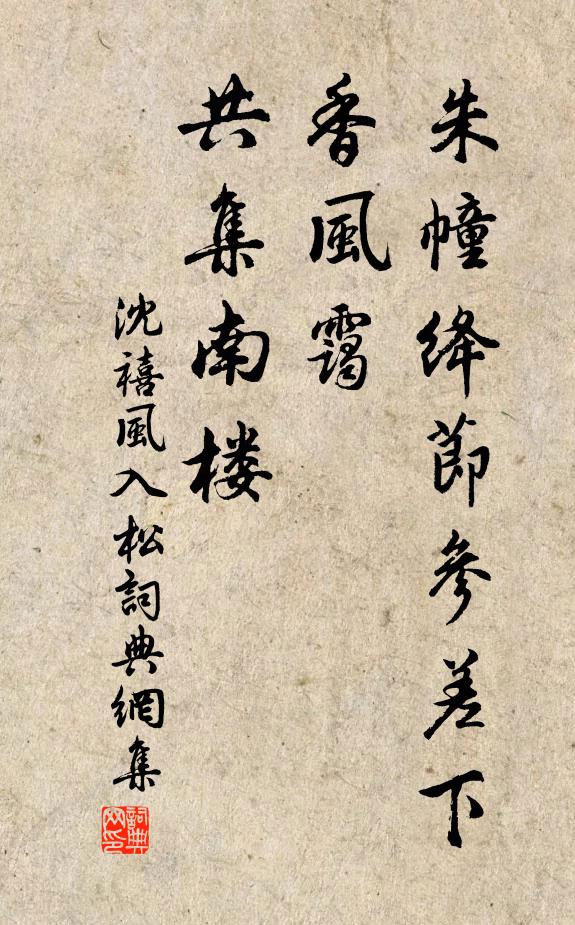 朱幢绛節參差下
香風靄
共集南楼
沈禧風入松詞典網集
詞典网印